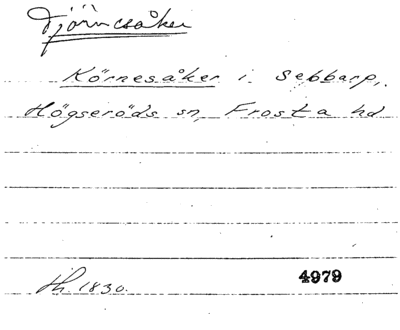 Tjörnesåker
Körnesåker i Sebbarp,
Högseröds sn, Frosta hd
Th. 1830.
4979